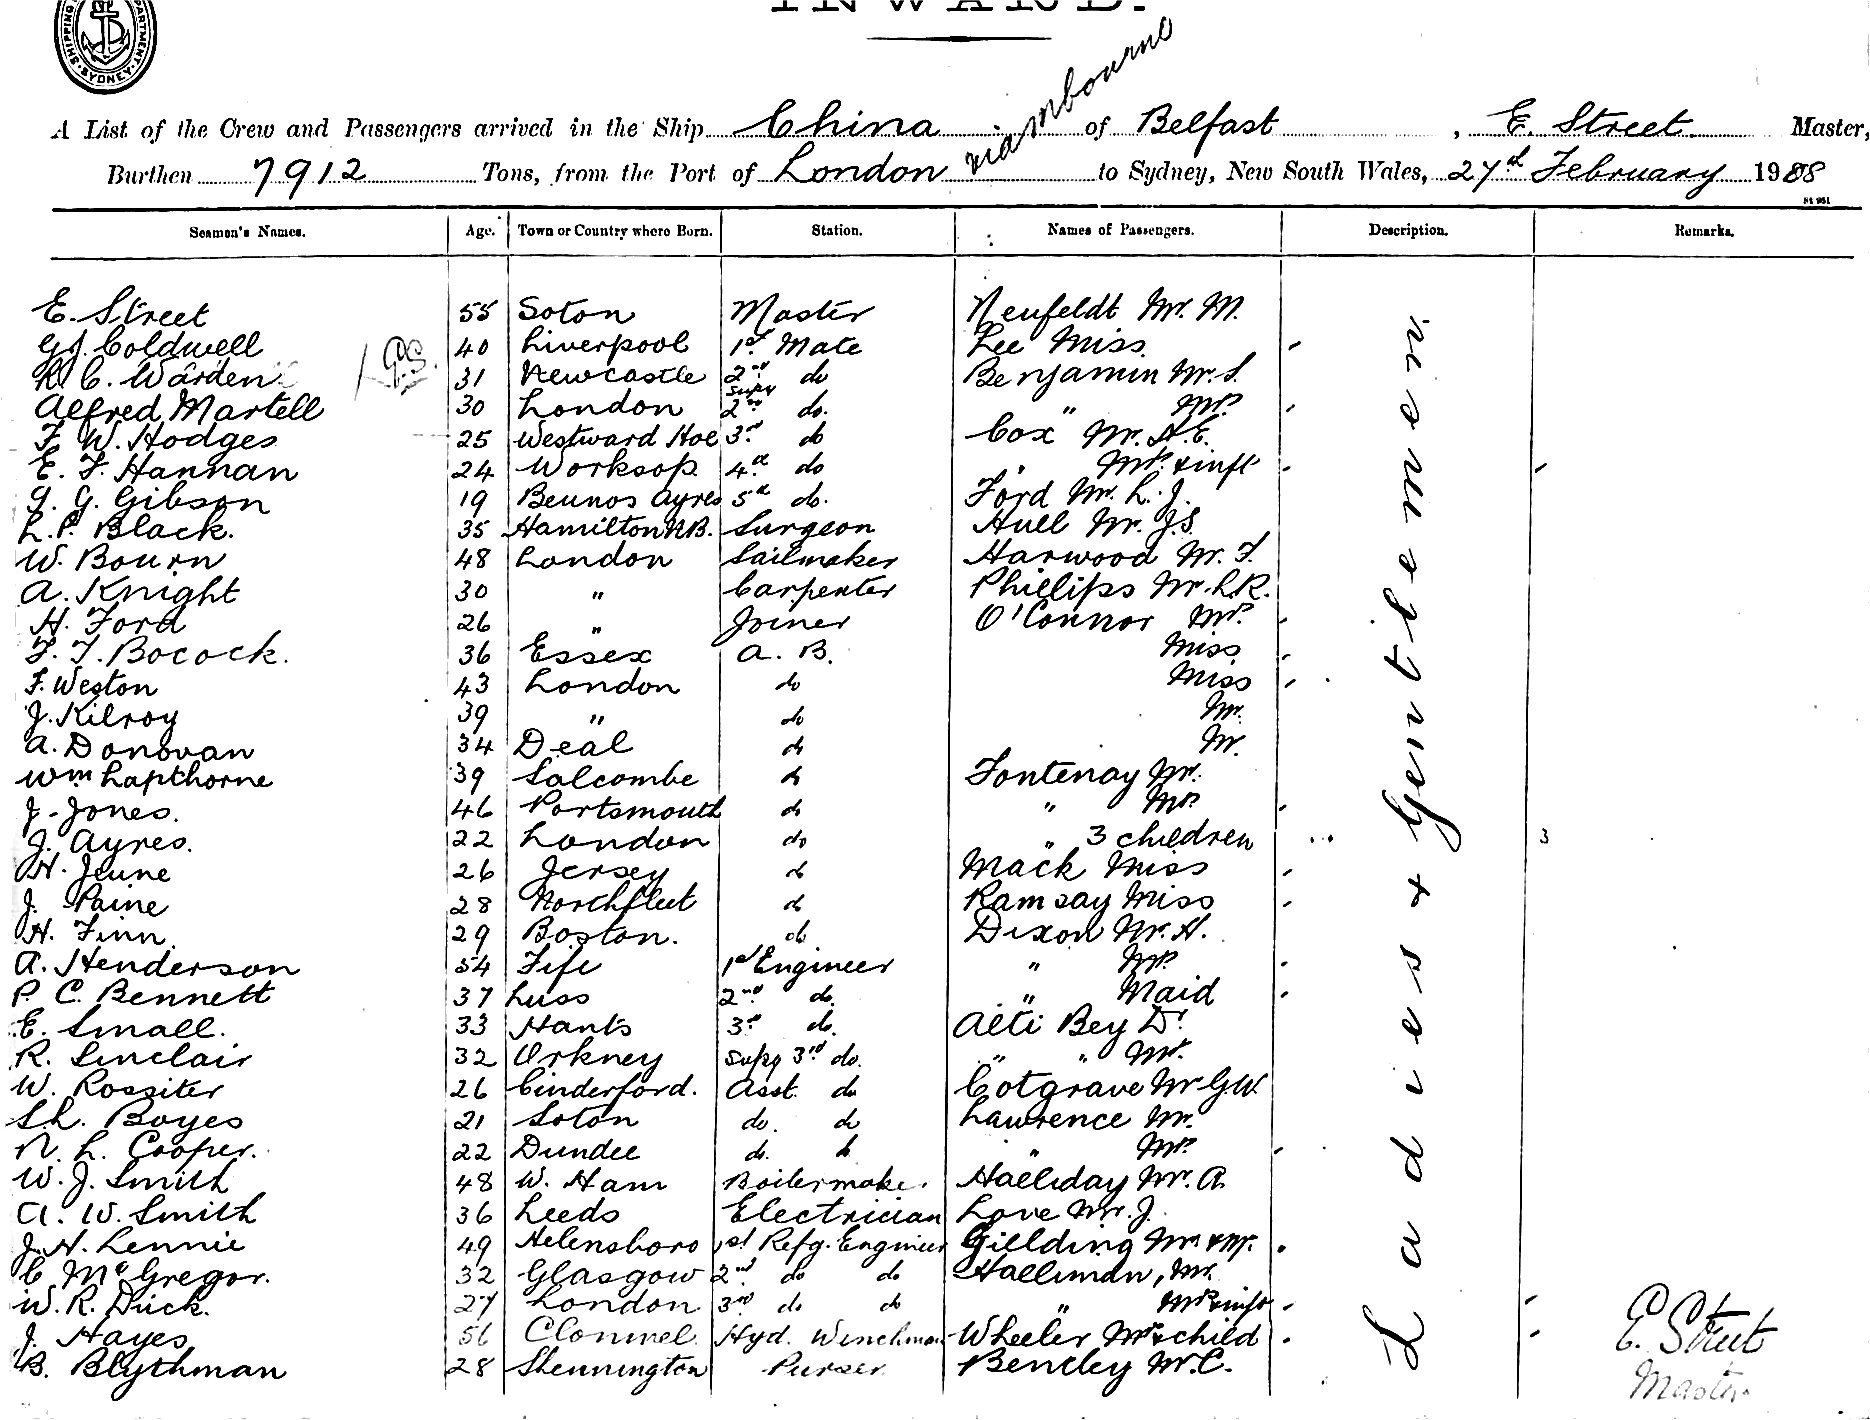 INWARD.
SHIPPING DEPARTMENT SYDNEY
A List of the Crew and Passengers arrived in the Ship China of Belfast, E. Street Master,
Burthen 7912 Tons, from the Port of London via Mbourne to Sydney, New South Wales, 27th February 1908
Seamen's Names. Age. Town or Country where Born. Station. Names of Passengers. Description. Remarks.
E. Street 55 Soton Master Neufeldt Mr. M.
G. J. Coldwell 40 Liverpool 1st Mate Lee Miss
R. C. Warden 31 Newcastle 2nd do Benjamin Mr. S.
Alfred Martell 30 London supy 2nd do. " Mrs
F. W. Hodges 25 Westward Hoe 3rd do Cox Mr. A.E.
E. F. Hannan 24 Worksop 4th do " Mrs & inft
G. G. Gibson 19 Beunos Ayres 5th do. Ford Mr. L. J.
L. P. Black. 35 Hamilton N.B. Surgeon Hull Mr. J.S.
W. Bourn 48 London Sailmaker Harwood Mr. F.
A. Knight 30 " Carpenter Phillips Mr. L.R.
H. Ford 26 " Joiner O'Connor Mrs.
F. T. Bocock. 36 Essex A. B. Miss
F. Weston 43 London do Miss
J. Kilroy 39 " do Mr.
A. Donovan 34 Deal do Mr.
Wm Lapthorne 39 Salcombe do Fontenay Mr.
J. Jones. 46 Portsmouth do " Mrs
J. Ayres. 22 London do " 3 children 3
H. Jeune 26 Jersey do Mack Miss
J. Paine 28 Northfleet do Ramsay Miss
H. Finn 29 Boston. do Dixon Mr. H.
A. Henderson 54 Fife 1st Engineer " Mrs
P. C. Bennett 37 Luss 2nd do. " Maid
E. Small. 33 Hants 3rd do. Alti Bey Dr.
R. Sinclair 32 Orkney supy 3rd do. " " Mr.
W. Rossiter 26 Cinderford. Asst. do Cotgrave Mr G.W.
S.L. Boyes 21 Soton do. do Lawrence Mr.
N. L. Cooper. 22 Dundee do. do " Mrs
W. J. Smith 48 W. Ham Boilermaker. Halliday Mr. A.
A. W. Smith 36 Leeds Electrician Love Mr. J.
J. H. Lennie 49 Helensboro 1st Refg. Engineer Gielding Mr. & Mrs.
C. McGregor. 32 Glasgow 2nd do do Halliman, Mr.
W. R. Duck. 27 London 3rd do do " Mrs & inft
J. Hayes 56 Clonmel Hyd. Winchman Wheeler Mrs & child
B. Blythman 28 Shennington Purser Bentley Mr. C.
Ladies & Gentlemen.
E. Street
Master